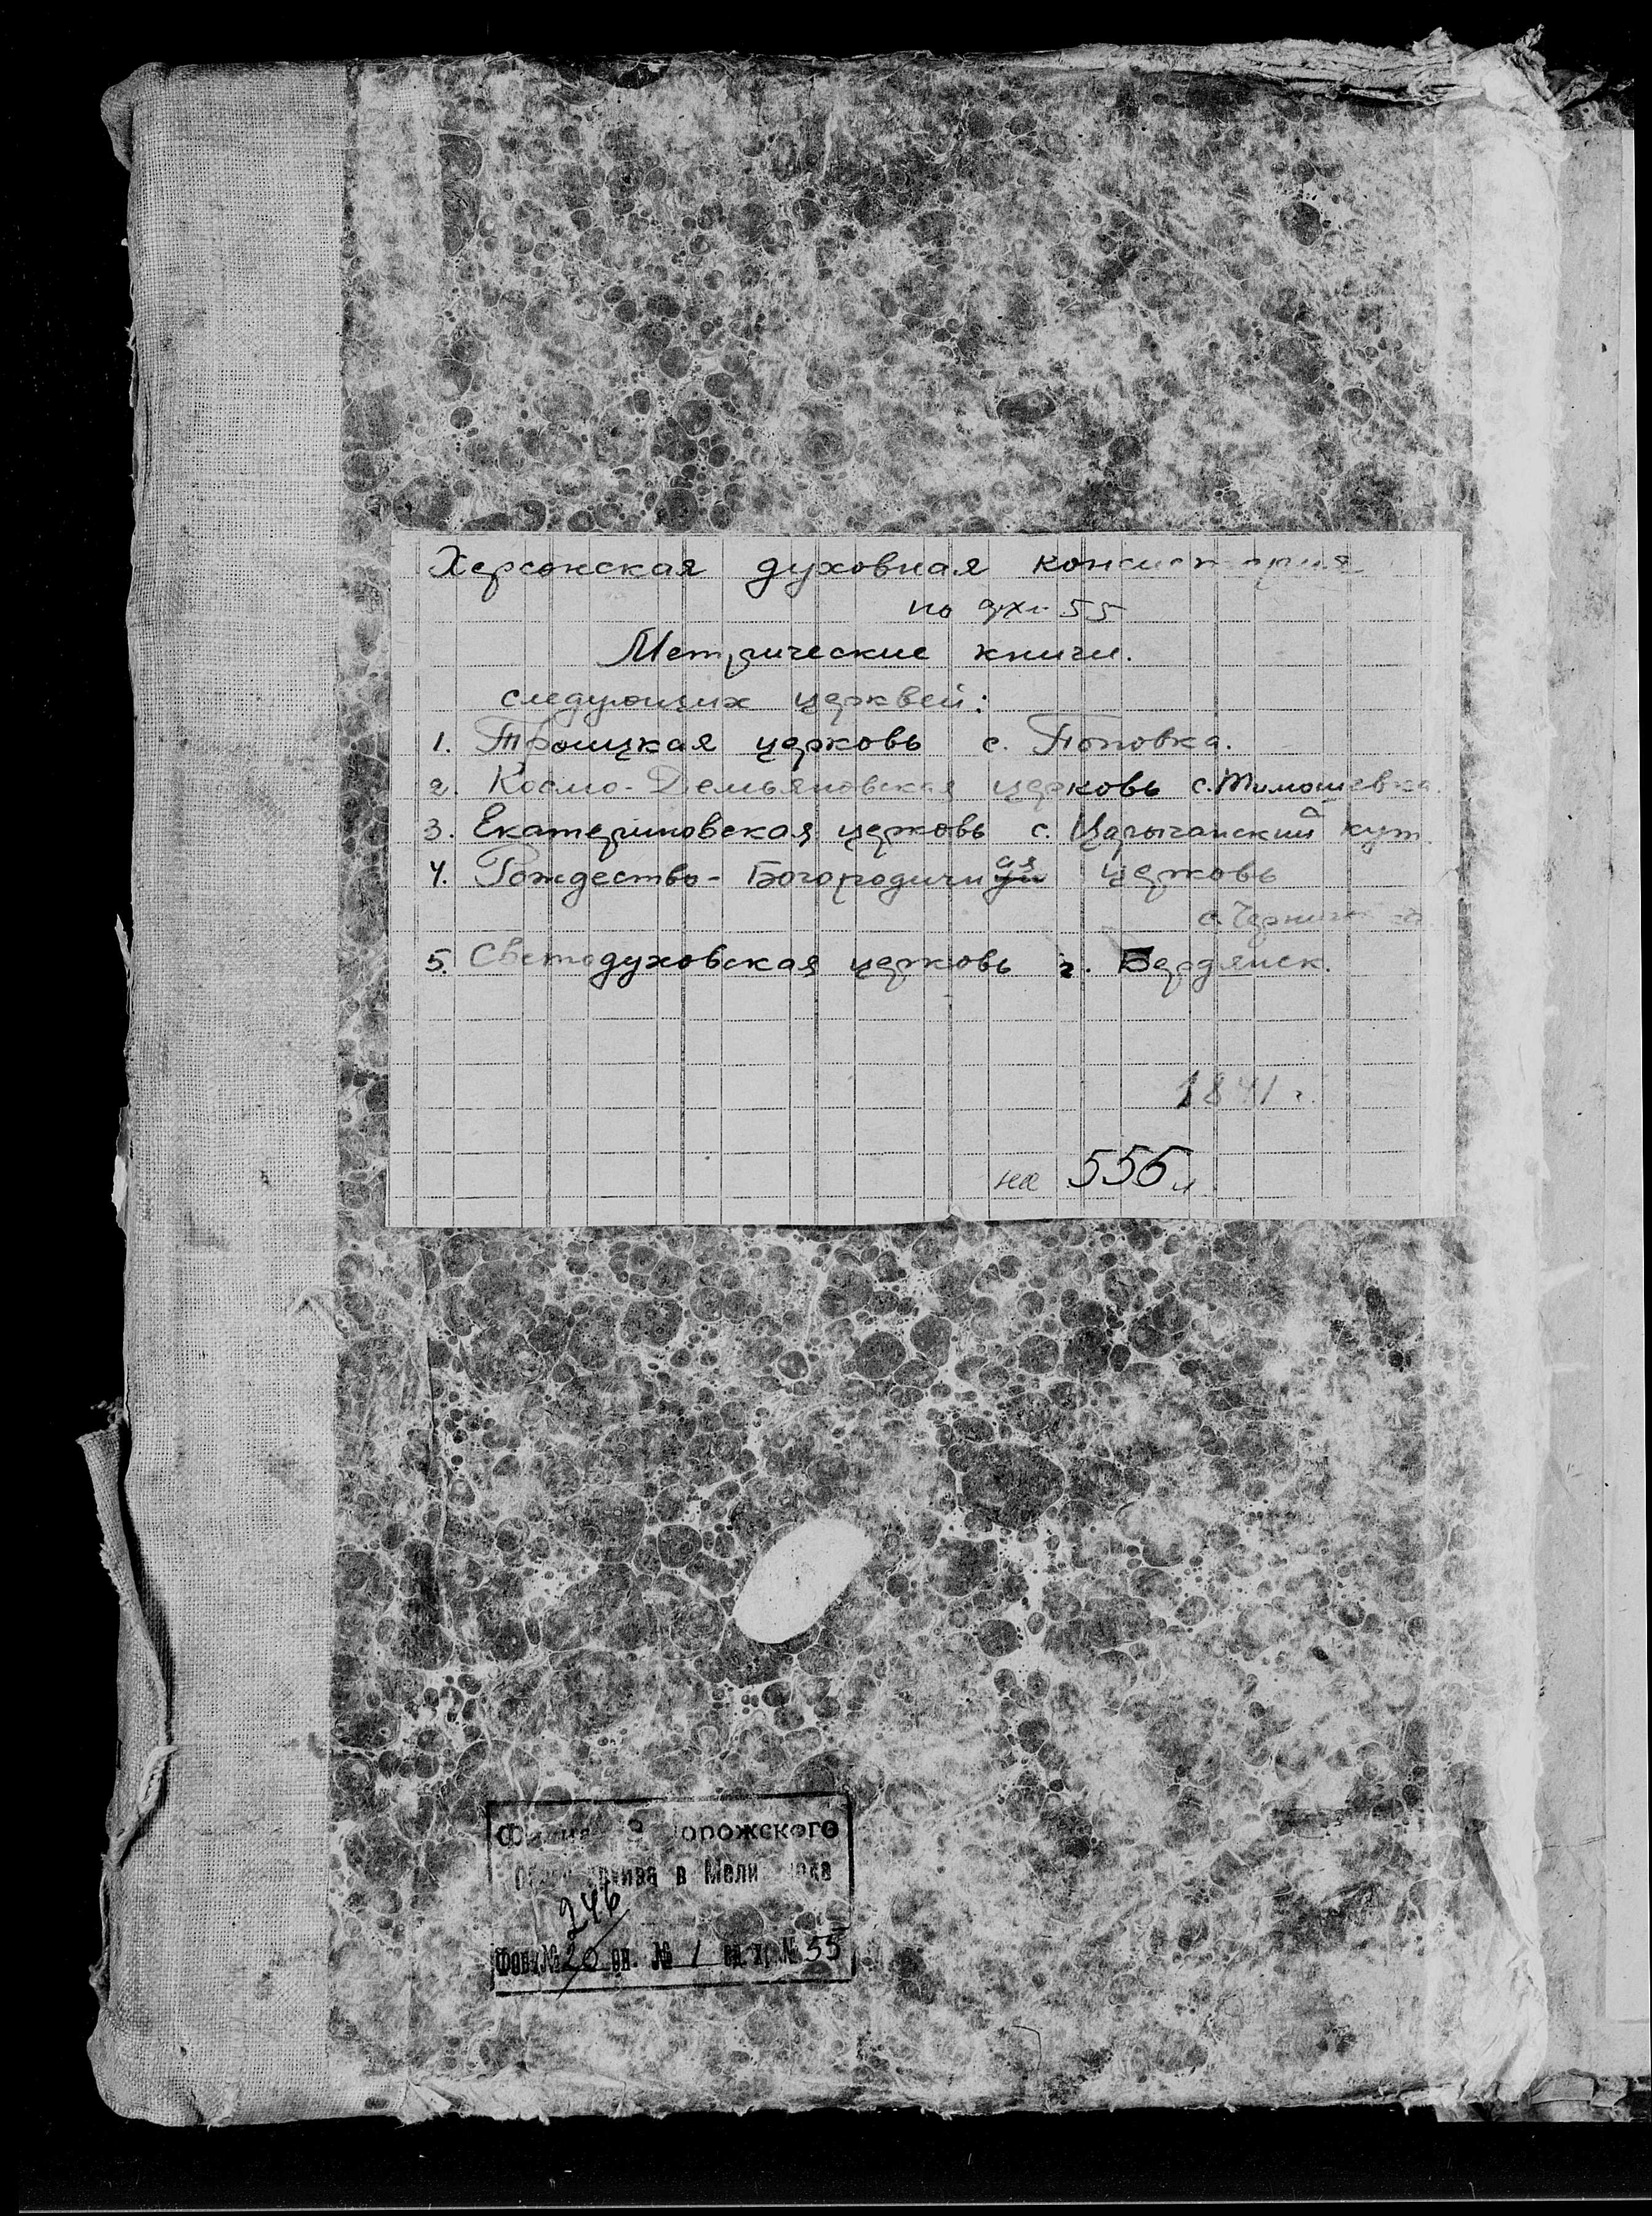 Херсонская духовная консистория
по арх. 55
Метрические книги.
следующих церквей:
1. Троицкая церковь с. Поповка.
2. Космо-Демьяновская церковь с. Тимошевка.
3. Екатериновская церковь с. Царычанский кут.
4. Рождество-Богородичная церковь
с.
5. Светодуховская церковь г. Бердянск.
1841 г.
на 556 л
Филиал Запорожского
облархива в Мелитополе
246
Фонд № 20 оп. № 1 ед. хр. № 55